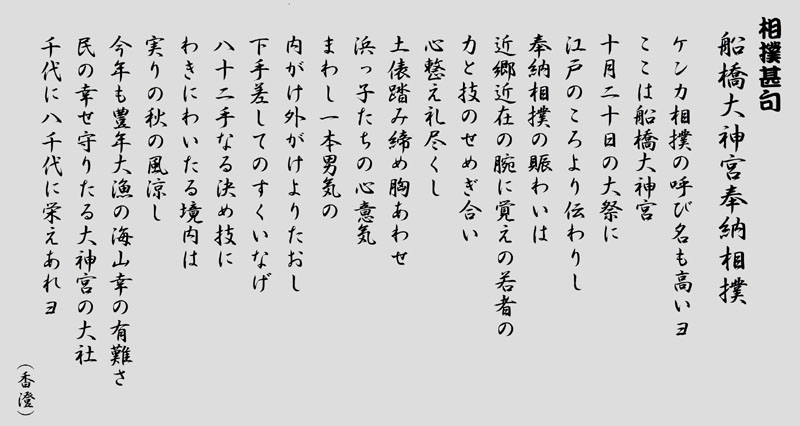 相撲甚句
船橋大神宮奉納相撲
ケンカ相撲の呼び名も高いヨ
ここは船橋大神宮
十月二十日の大祭に
江戸のころより伝わりし
奉納相撲の賑わいは
近郷近在の腕に覚えの若者の
力と技のせめぎ合い
心整え礼尽くし
土俵踏み締め胸あわせ
浜っ子たちの心意気
まわし一本男気の
内がけ外がけよりたおし
下手差してのすくいなげ
八十二手なる決め技に
わきにわいたる境内は
実りの秋の風涼し
今年も豊年大漁の海山幸の有難さ
民の幸せ守りたる大神宮の大社
千代に八千代に栄えあれヨ
（香澄）